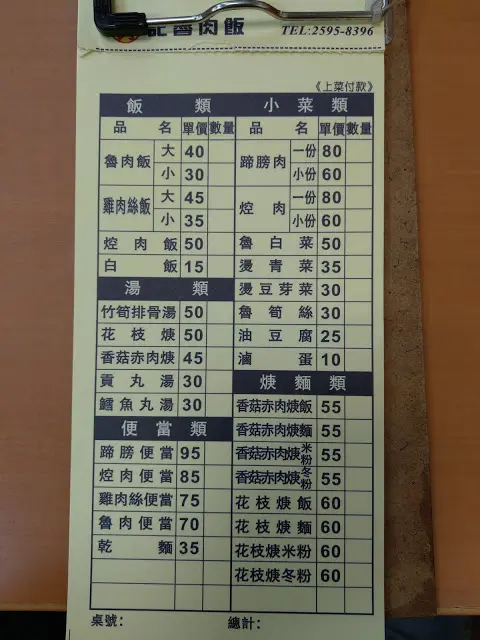 記魯肉飯
TEL:2595-8396
《上菜付款》
飯 類
品 名 單價 數量
魯肉飯 大 40
小 30
雞肉絲飯 大 45
小 35
焢肉飯 50
白飯 15
湯 類
竹筍排骨湯 50
花枝焿 50
香菇赤肉焿 45
貢丸湯 30
鱈魚丸湯 30
便當類
蹄膀便當 95
焢肉便當 85
雞肉絲便當 75
魯肉便當 70
乾麵 35
小菜類
品 名 單價 數量
蹄膀肉 一份 80
小份 60
焢肉 一份 80
小份 60
魯白菜 50
燙青菜 35
燙豆芽菜 30
魯筍絲 30
油豆腐 25
滷蛋 10
焿麵類
香菇赤肉焿飯 55
香菇赤肉焿麵 55
香菇赤肉焿米粉 55
香菇赤肉焿冬粉 55
花枝焿飯 60
花枝焿麵 60
花枝焿米粉 60
花枝焿冬粉 60
桌號: 總計: